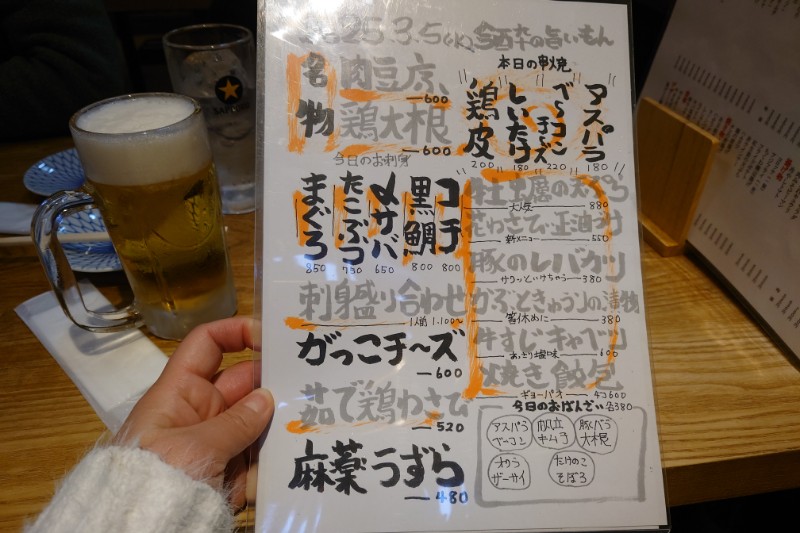 2025.3.5(水)今酔の旨いもん
名物
肉豆腐
600
鶏大根
600
本日の串焼
鶏皮
200
しいたけ
180
ベーコンチーズ
220
アスパラ
180
今日のお刺身
まぐろ
850
たこぶつ
730
〆サバ
650
黒鯛
800
コチ
800
刺身盛り合わせ
1人前 1.100~
がっこチ〜ズ
600
茹で鶏わさび
520
麻薬うずら
480
牡蠣の天ぷら
大人気
880
花わさび、玉油ずけ
新メニュー
550
豚のレバカツ
サクッといけちゃう
380
かぶときゅうりの漬物
箸休めに
380
牛すじキャベツ
あっさり塩味
600
焼き餃包
ギョーパオ
4コ600
今日のおばんざい各380
アスパラベーコン
帆立キムチ
豚バラ大根
わかめザーサイ
たけのこそぼろ